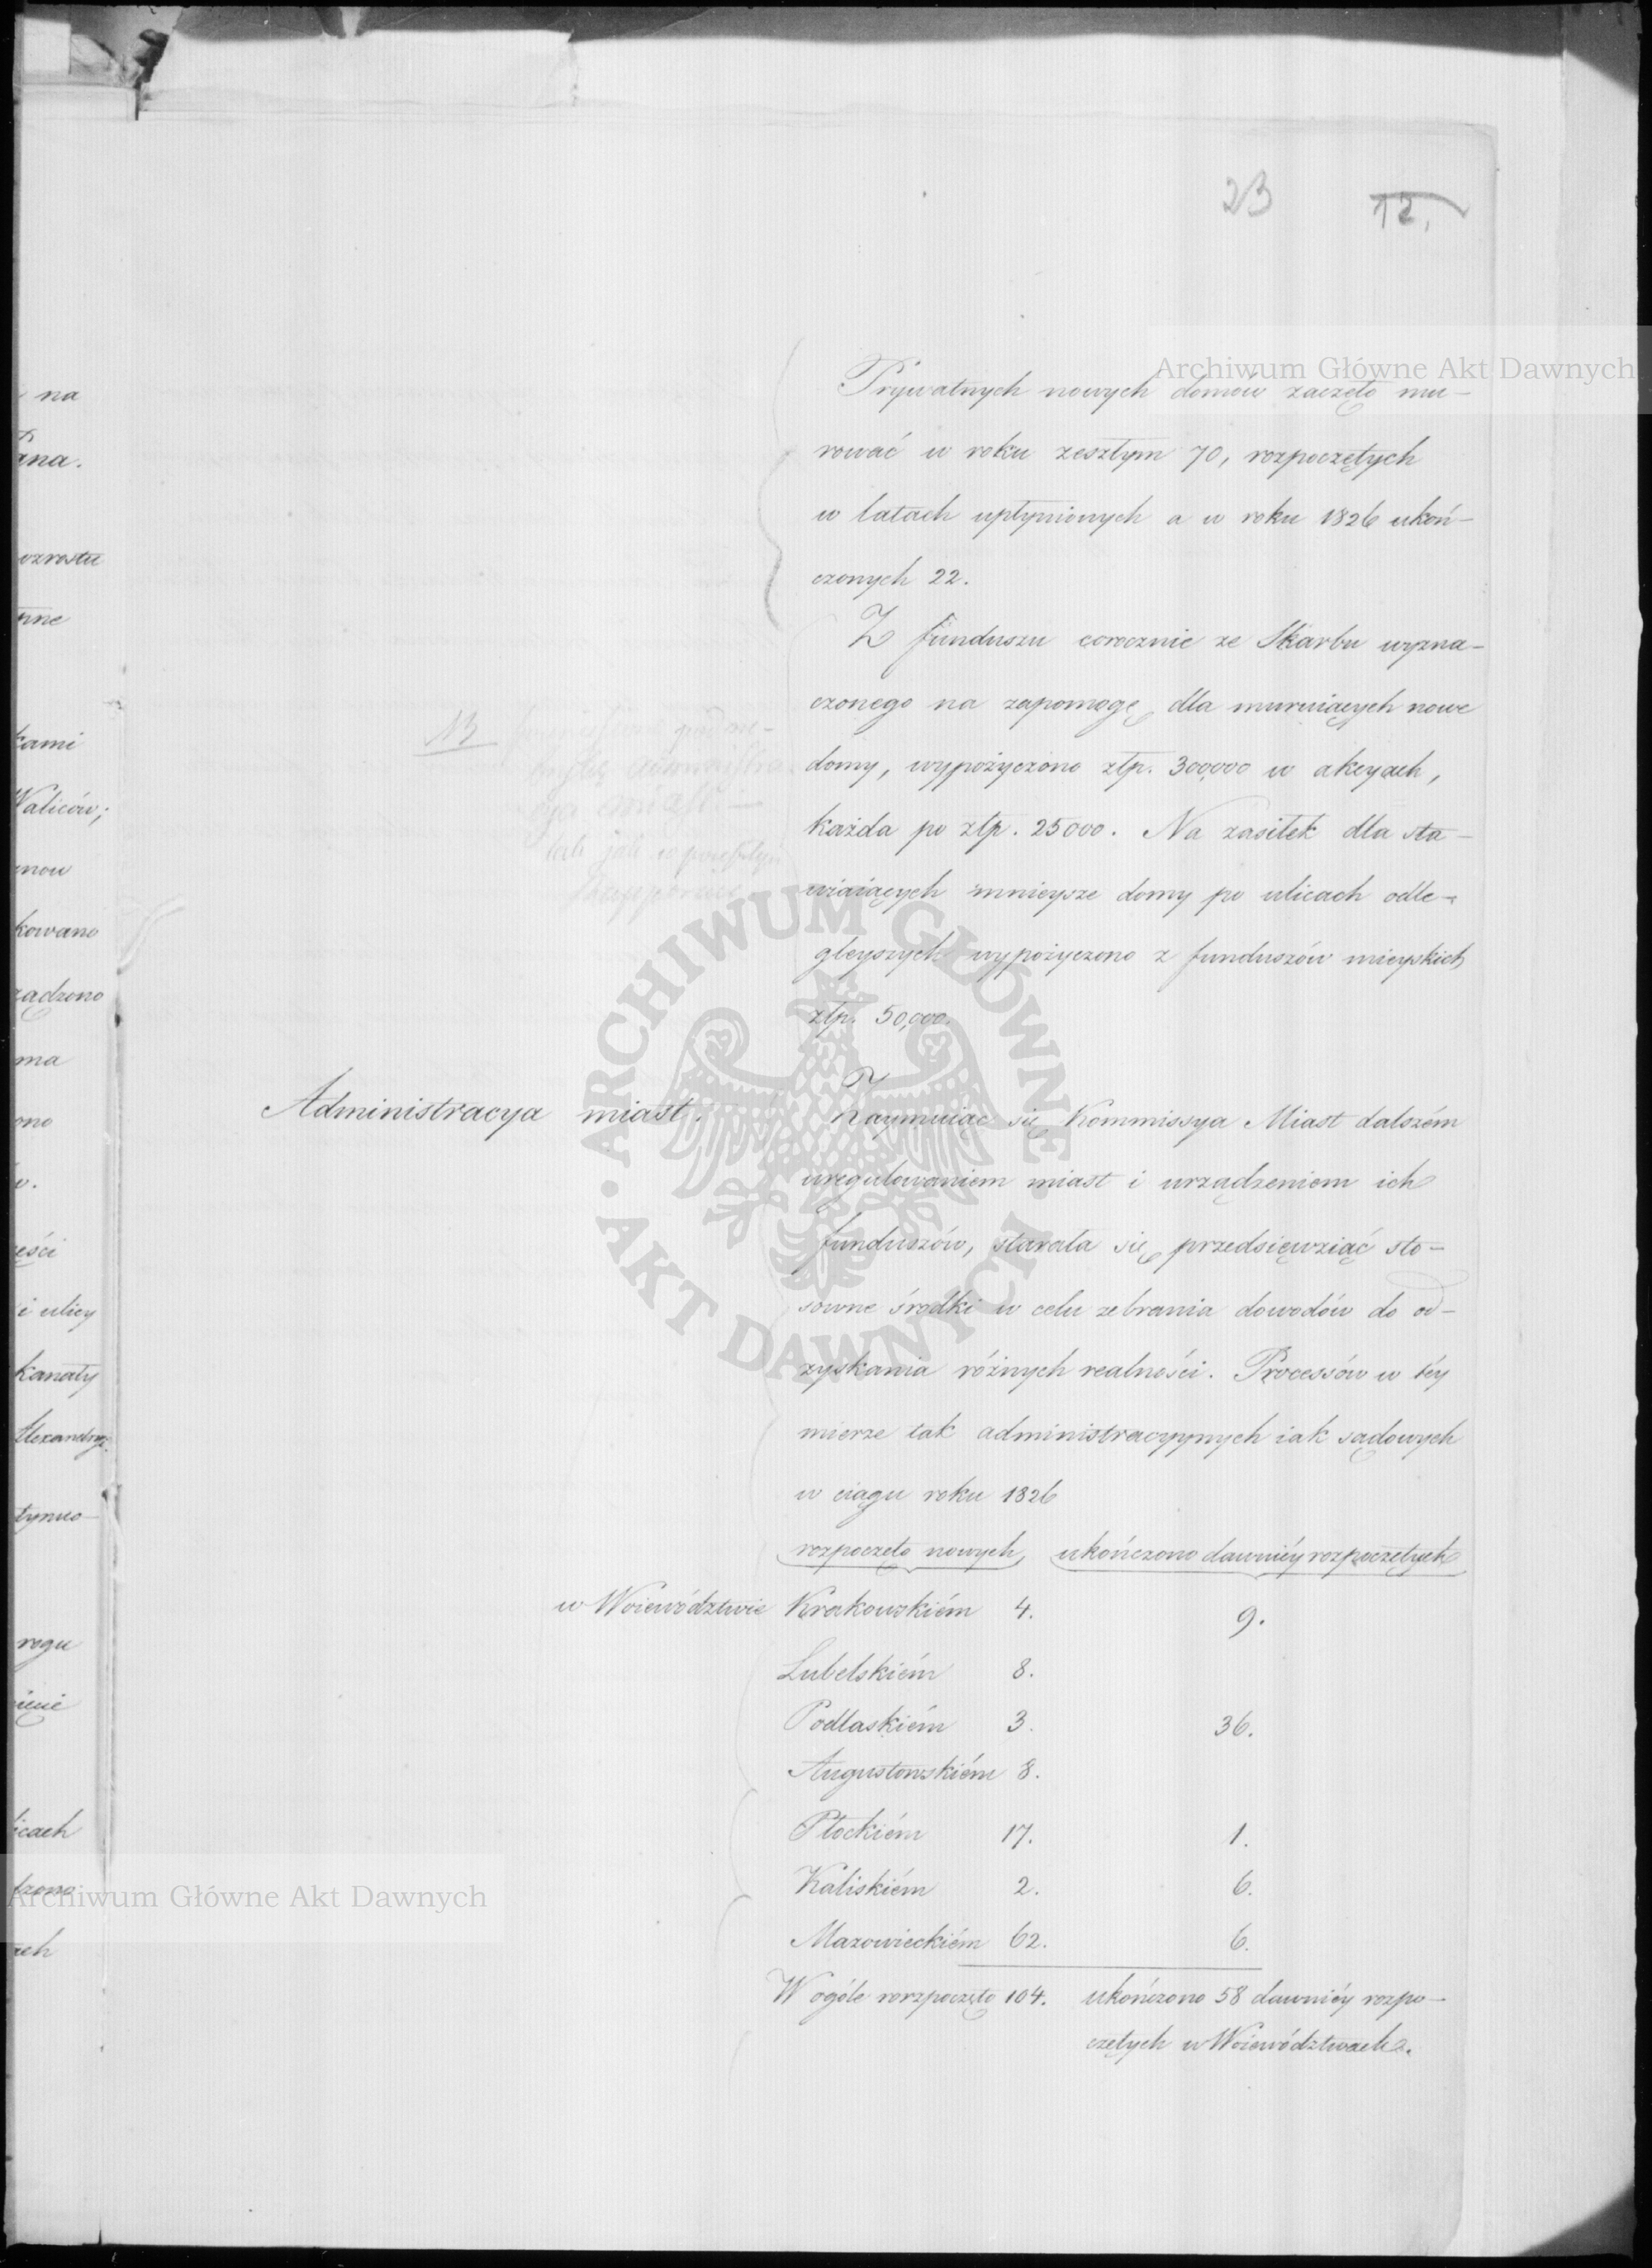 23 12.
Prywatnych nowych domów zaczęto mu-
rować w roku zeszłym 70, rozpoczętych
w latach upłynionych a w roku 1826 ukoń-
czonych 22.
Z funduszu corocznie ze Skarbu wyzna-
czonego na zapomogę dla muruiących nowe
domy, wypożyczono złp. 300,000 w akcyach,
każda po złp. 25000. Na zasiłek dla sta-
wiaiących mnieysze domy po ulicach odle-
gleyszych wypożyczono z funduszów mieyskich
złp. 50,000.
13
Administracya miast.
Zaymuiąc się Kommissya Miast dalszém
uregulowaniem miast i urządzeniem ich
funduszów, starała się przedsięwziąć sto-
sowne środki w celu zebrania dowodów do od-
zyskania różnych realności. Processów w téy
mierze tak administracyynych iak sądowych
w ciągu roku 1826
rozpoczęto nowych, ukończono dawniéy rozpoczętych
w Woiewództwie Krakowskiém 4. 9.
Lubelskiém 8.
Podlaskiém 3. 36.
Augustowskiém 8.
Płockiém 17. 1.
Kaliskiém 2. 6.
Mazowieckiém 62. 6.
W ogóle rorzpoczęto 104. ukończono 58 dawniéy rozpo-
czętych w Woiewództwach.
na
kami
Waliców;
kowano
i ulicy
kanały
Archiwum Główne Akt Dawnych
ARCHIWUM GŁÓWNE · AKT DAWNYCH ·
Archiwum Główne Akt Dawnych